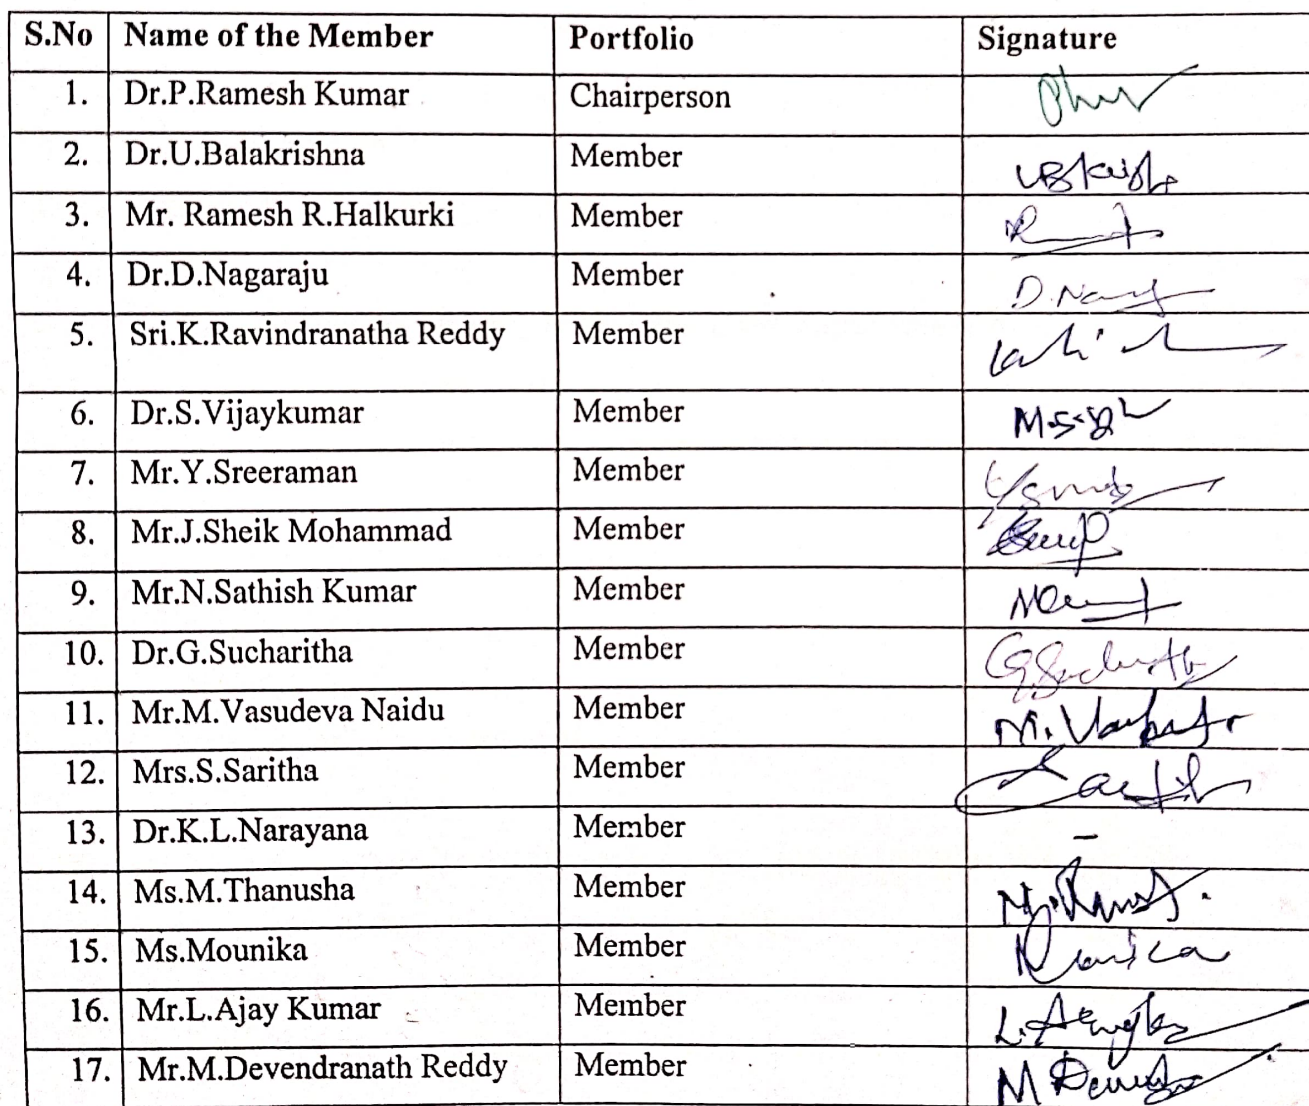 S.No Name of the Member Portfolio Signature
1. Dr.P.Ramesh Kumar Chairperson
2. Dr.U.Balakrishna Member
3. Mr. Ramesh R.Halkurki Member
4. Dr.D.Nagaraju Member
5. Sri.K.Ravindranatha Reddy Member
6. Dr.S.Vijaykumar Member
7. Mr.Y.Sreeraman Member
8. Mr.J.Sheik Mohammad Member
9. Mr.N.Sathish Kumar Member
10. Dr.G.Sucharitha Member
11. Mr.M.Vasudeva Naidu Member
12. Mrs.S.Saritha Member
13. Dr.K.L.Narayana Member –
14. Ms.M.Thanusha Member
15. Ms.Mounika Member
16. Mr.L.Ajay Kumar Member
17. Mr.M.Devendranath Reddy Member